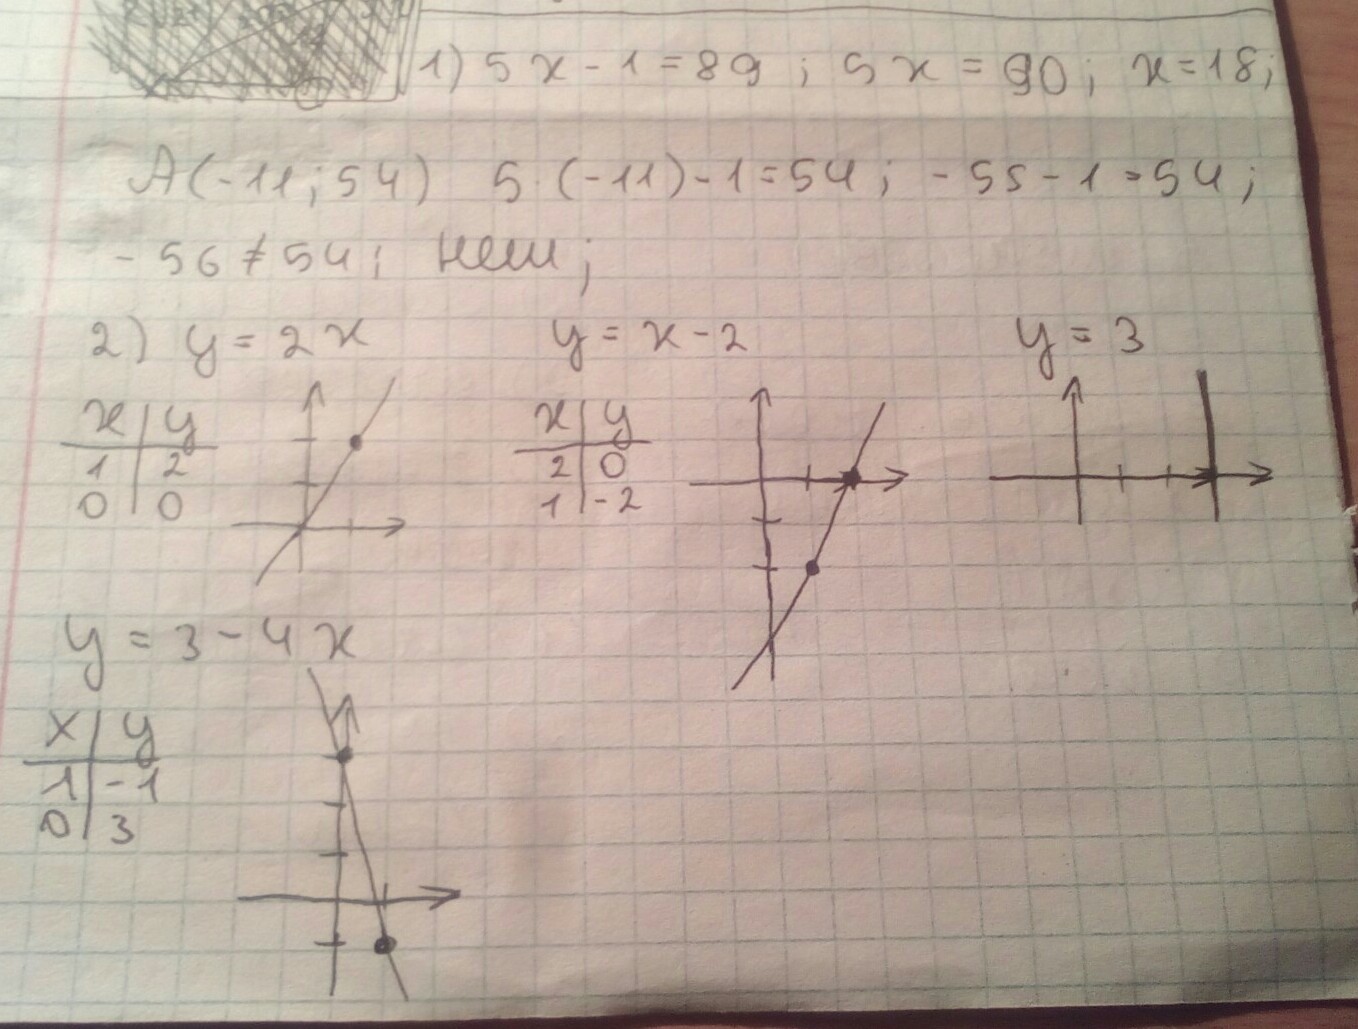 1) 5x-1=89; 5x=90; x=18;
A(-11;54) 5·(-11)-1=54; -55-1=54;
-56≠54; нет;
2) y=2x y=x-2 y=3
x|y x|y
1|2 2|0
0|0 1|-2
y=3-4x
x|y
1|-1
0|3